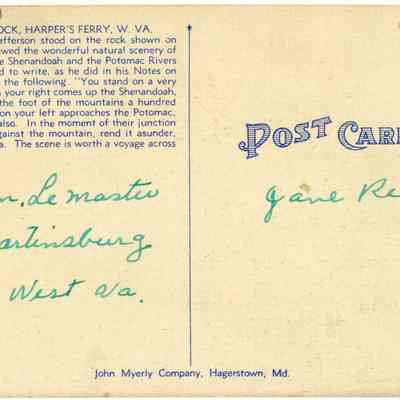 OCK, HARPER'S FERRY, W. VA.
efferson stood on the rock shown on
ewed the wonderful natural scenery of
e Shenandoah and the Potomac Rivers
d to write, as he did in his Notes on
the following. "You stand on a very
n your right comes up the Shenandoah,
the foot of the mountains a hundred
on your left approaches the Potomac,
also. In the moment of their junction
against the mountain, rend it asunder,
a. The scene is worth a voyage across
POST CAR
m. Le Master
artinsburg
West Va.
Jane Re
John Myerly Company, Hagerstown, Md.